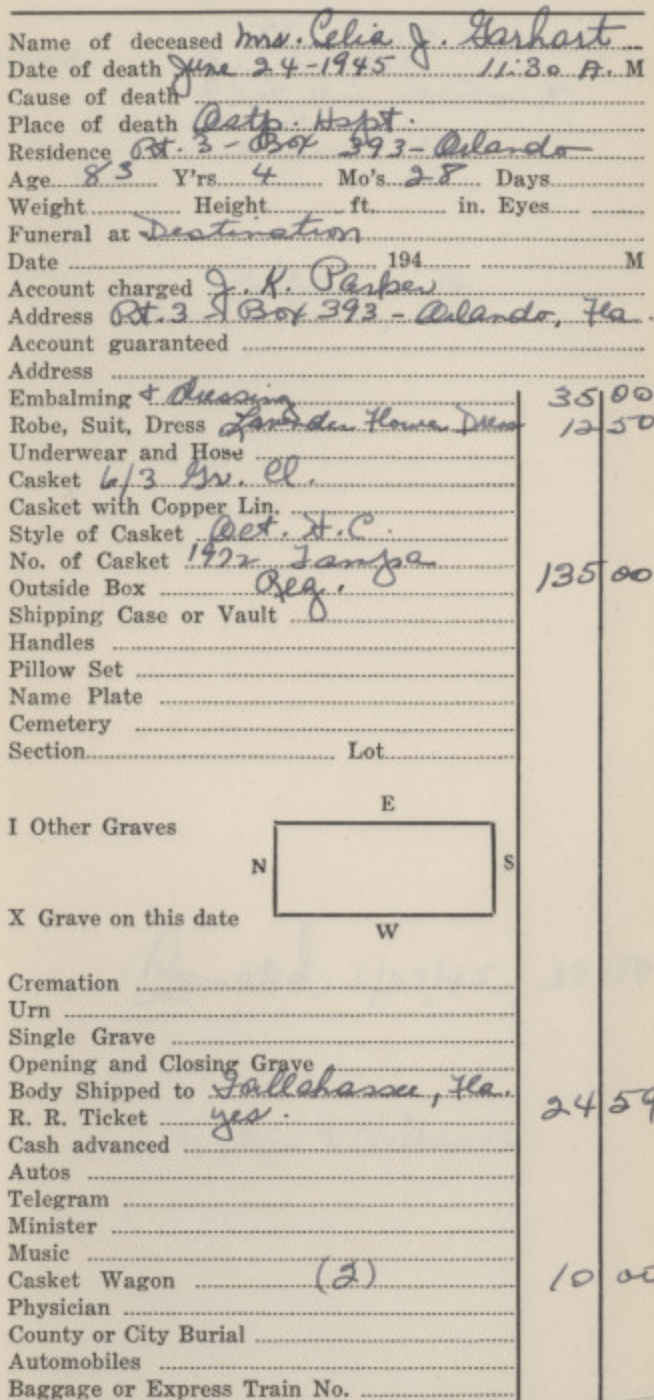 Name of deceased Mrs. Celia J. Garhart
Date of death June 24-1945 11:30 A. M
Cause of death
Place of death Hspt.
Residence Rt. 3 - Box 393 - Orlando
Age 83 Y'rs. 4 Mo's 28 Days
Weight Height ft. in. Eyes
Funeral at Destination
Date 194 M
Account charged J. K. Parker
Address Rt. 3 - Box 393 - Orlando, Fla.
Account guaranteed
Address
Embalming & Dressing 35 00
Robe, Suit, Dress Lavender Flower Dress 12 50
Underwear and Hose
Casket 6/3 Gr. Cl.
Casket with Copper Lin.
Style of Casket Oct. H.C.
No. of Casket 1922 Tampa 135 00
Outside Box Reg.
Shipping Case or Vault
Handles
Pillow Set
Name Plate
Cemetery
Section Lot
E
I Other Graves
N S
X Grave on this date
W
Cremation
Urn
Single Grave
Opening and Closing Grave
Body Shipped to Tallahassee, Fla.
R. R. Ticket yes. 24 59
Cash advanced
Autos
Telegram
Minister
Music
Casket Wagon (2) 10 00
Physician
County or City Burial
Automobiles
Baggage or Express Train No.